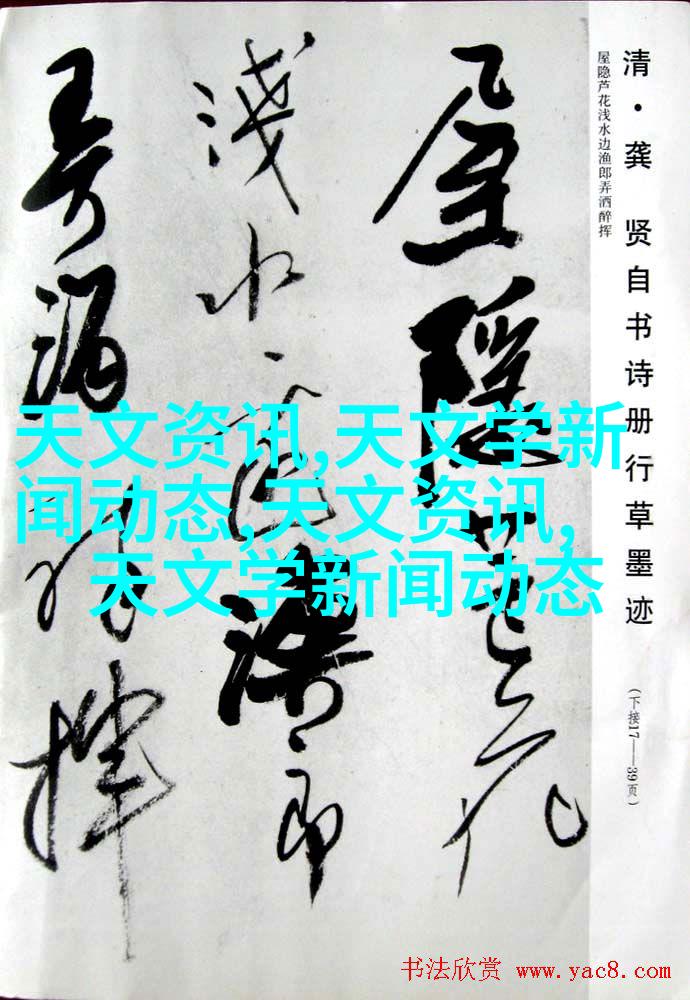 清·龚 贤自书诗册行草墨迹
(下接17——39页)
屋隐芦花浅水边渔郎弄洒醉挥
屋隱芦花
淺水邊漁郎
弄酒醉揮
天文资讯,天文学新
闻动态,天文资讯,
天文学新闻动态
书法欣赏 www.yac8.com